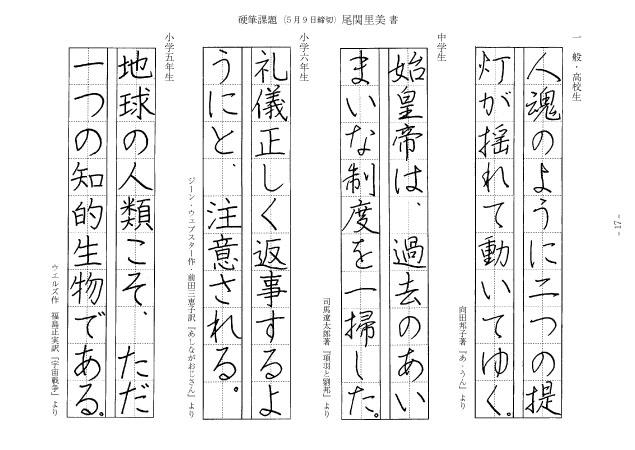 硬筆課題（５月９日締切）尾関里美 書
一般・高校生
人魂のように二つの提
灯が揺れて動いてゆく。
向田邦子著『あ・うん』より
中学生
始皇帝は、過去のあい
まいな制度を一掃した。
司馬遼太郎著『項羽と劉邦』より
小学六年生
礼儀正しく返事するよ
うにと、注意される。
ジーン・ウェブスター作　前田三恵子訳『あしながおじさん』より
小学五年生
地球の人類こそ、ただ
一つの知的生物である。
ウエルズ作　福島正実訳『宇宙戦争』より
- 17 -